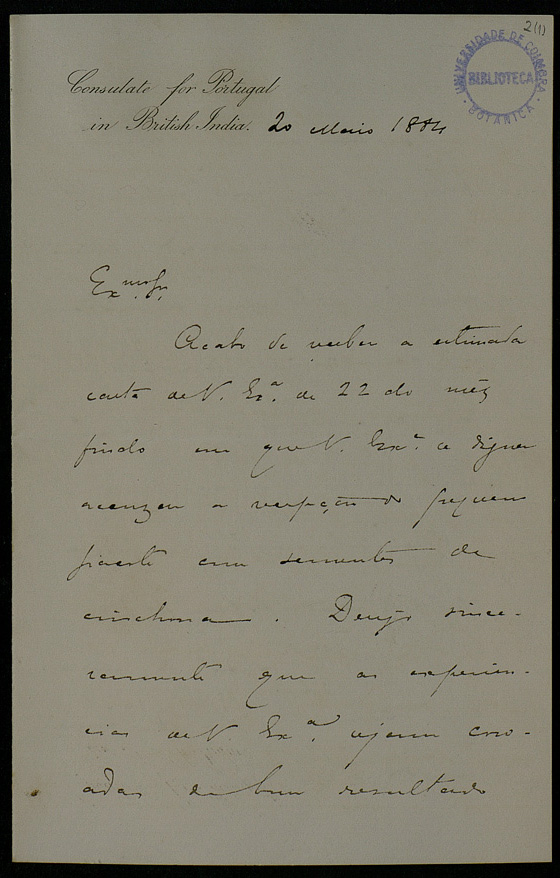 2(1)
UNIVERSIDADE DE COIMBRA
BIBLIOTECA
BOTANICA
Consulate for Portugal
in British India. 20 Maio 1884
Ex.mo Sr.
Acabo de receber a estimada
carta de V. Ex.a de 22 do mez
findo em que V. Ex.a se digna
accuzar a recepção do pequeno
pacote com sementes de
cinchona. Dezejo since-
ramente que as experien-
cias de V. Ex.a sejam coro-
adas de bom resultado